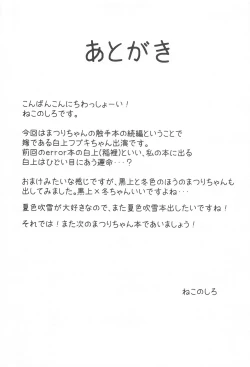 あとがき
こんばんこんにちわっしょーい！
ねこのしろです。
今回はまつりちゃんの触手本の続編ということで
陰である白上フブキちゃん出演です。
前回のerror本の白上(稲裡)といい、私の本に出る
白上はひどい目にあう運命・・・？
おまけみたいな感じですが、黒上と冬色のほうのまつりちゃんも
出してみました。黒上×冬ちゃんいいですよね・・・
夏色吹雪が大好きなので、また夏色吹雪本出したいですね！
それでは！また次のまつりちゃん本であいましょう！
ねこのしろ